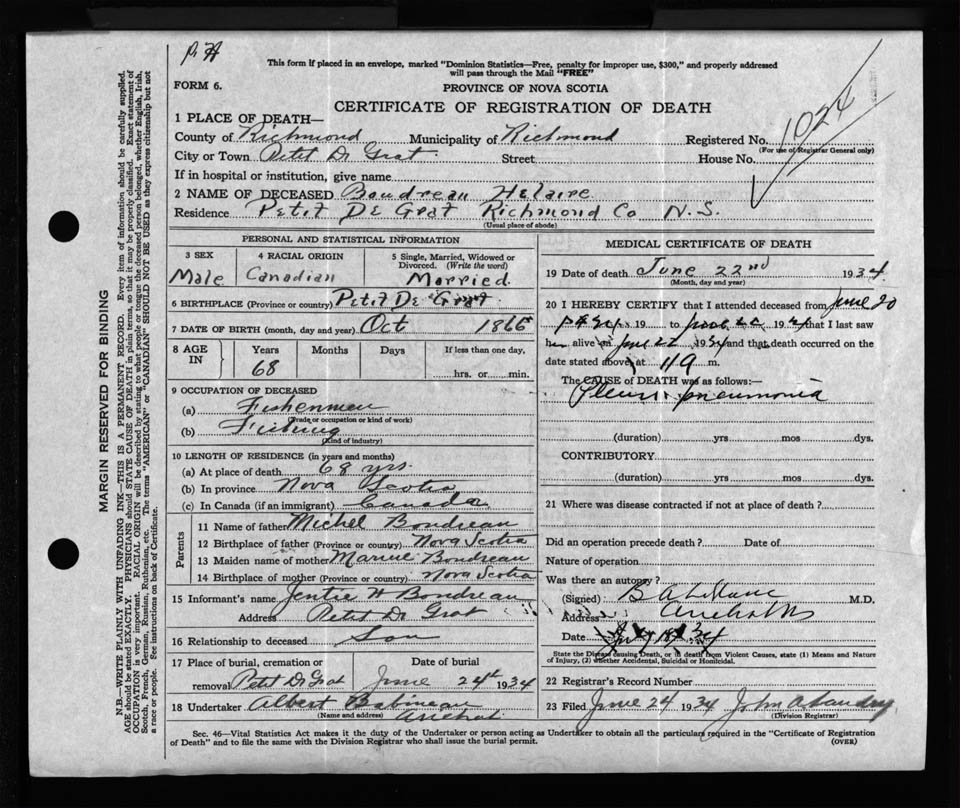 P. H
This form if placed in an envelope, marked "Dominion Statistics—Free, penalty for improper use, $300," and properly addressed
will pass through the Mail "FREE"
FORM 6.
PROVINCE OF NOVA SCOTIA
CERTIFICATE OF REGISTRATION OF DEATH
1024
1 PLACE OF DEATH—
County of Richmond Municipality of Richmond Registered No.
(For use of Registrar General only)
City or Town Petit D Grat Street House No.
If in hospital or institution, give name
2 NAME OF DECEASED Boudreau Helaire
Residence Petit De Grat Richmond Co N.S.
(Usual place of abode)
PERSONAL AND STATISTICAL INFORMATION
3 SEX 4 RACIAL ORIGIN 5 Single, Married, Widowed or
Divorced. (Write the word)
Male Canadian Married.
6 BIRTHPLACE (Province or country) Petit De Grat
7 DATE OF BIRTH (month, day and year) Oct 1865
8 AGE IN Years Months Days If less than one day,
68 hrs. or min.
9 OCCUPATION OF DECEASED
(a) Fishermen
(Trade or occupation or kind of work)
(b) Fishing
(Kind of industry)
10 LENGTH OF RESIDENCE (in years and months)
(a) At place of death 68 yrs.
(b) In province Nova Scotia
(c) In Canada (if an immigrant) Canada
Parents
11 Name of father Michel Boudreau
12 Birthplace of father (Province or country) Nova Scotia
13 Maiden name of mother Boudreau
14 Birthplace of mother (Province or country) Nova Scotia
15 Informant's name H Boudreau
Address Petit D Grat
16 Relationship to deceased Son
17 Place of burial, cremation or Date of burial
removal Petit D Grat June 24th 1934
18 Undertaker Albert Babineau
(Name and address) Arichat
MEDICAL CERTIFICATE OF DEATH
19 Date of death June 22nd 1934
(Month, day and year)
20 I HEREBY CERTIFY that I attended deceased from June 20
19 to 19 that I last saw
h alive on June 22 1934 and that death occurred on the
date stated above at 11 9 m.
The CAUSE of DEATH was as follows:—
Pleuri pneumonia
(duration) yrs mos dys.
CONTRIBUTORY
(duration) yrs mos dys.
21 Where was disease contracted if not at place of death?
Did an operation precede death? Date of
Nature of operation
Was there an autopsy?
(Signed) B A LeBlanc M.D.
Address Arichat NS
Date 34
State the Disease causing Death, or in death from Violent Causes, state (1) Means and Nature
of Injury, (2) whether Accidental, Suicidal or Homicidal.
22 Registrar's Record Number
23 Filed June 24 1934 John A Landry
(Division Registrar)
Sec. 46—Vital Statistics Act makes it the duty of the Undertaker or person acting as Undertaker to obtain all the particulars required in the "Certificate of Registration
of Death" and to file the same with the Division Registrar who shall issue the burial permit. (OVER)
MARGIN RESERVED FOR BINDING
N.B.—WRITE PLAINLY WITH UNFADING INK—THIS IS A PERMANENT RECORD. Every item of information should be carefully supplied.
AGE should be stated EXACTLY. PHYSICIANS should STATE CAUSE OF DEATH in plain terms, so that it may be properly classified. Exact statement of
OCCUPATION is very important. RACIAL ORIGIN will be described by stating to what people or tongue the deceased person belonged, whether English, Irish,
Scotch, French, German, Russian, Ruthenian, etc. The terms "AMERICAN" or "CANADIAN" SHOULD NOT BE USED as they express citizenship but not
a race or people. See instructions on back of Certificate.